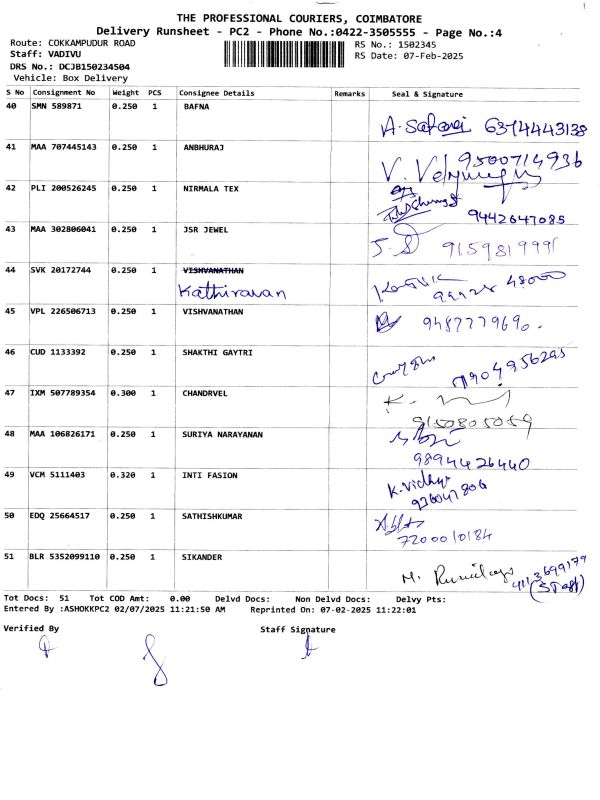 THE PROFESSIONAL COURIERS, COIMBATORE
Delivery Runsheet - PC2 - Phone No.:0422-3505555 - Page No.:4
Route: COKKAMPUDUR ROAD RS No.: 1502345
Staff: VADIVU RS Date: 07-Feb-2025
DRS No.: DCJB150234504
Vehicle: Box Delivery
S No Consignment No Weight PCS Consignee Details Remarks Seal & Signature
40 SMN 589871 0.250 1 BAFNA
41 MAA 707445143 0.250 1 ANBHURAJ
9500714936
42 PLI 200526245 0.250 1 NIRMALA TEX
9442647085
43 MAA 302806041 0.250 1 JSR JEWEL
9159819991
44 SVK 20172744 0.250 1 VISHVANATHAN
Kathiravan
45 VPL 226506713 0.250 1 VISHVANATHAN
9487779690.
46 CUD 1133392 0.250 1 SHAKTHI GAYTRI
47 IXM 507789354 0.300 1 CHANDRVEL
9150805059
48 MAA 106826171 0.250 1 SURIYA NARAYANAN
9894426440
49 VCM 5111403 0.320 1 INTI FASION
K. Vidhya
50 EDQ 25664517 0.250 1 SATHISHKUMAR
7200010184
51 BLR 5352099110 0.250 1 SIKANDER
(Staff)
Tot Docs: 51 Tot COD Amt: 0.00 Delvd Docs: Non Delvd Docs: Delvy Pts:
Entered By :ASHOKKPC2 02/07/2025 11:21:50 AM Reprinted On: 07-02-2025 11:22:01
Verified By Staff Signature